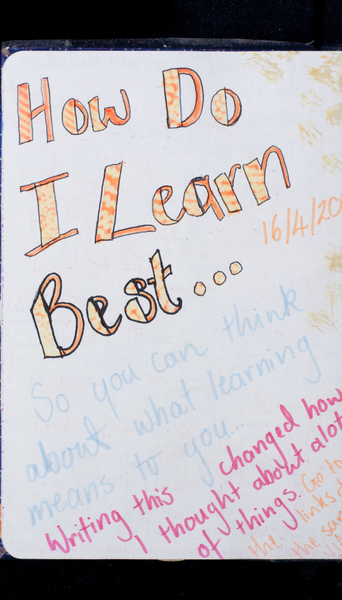 How Do
I Learn
Best...
16/4/20
So you can think
about what learning
means to you...
Writing this changed how
I thought about alot
of things.
Go to
the links
the